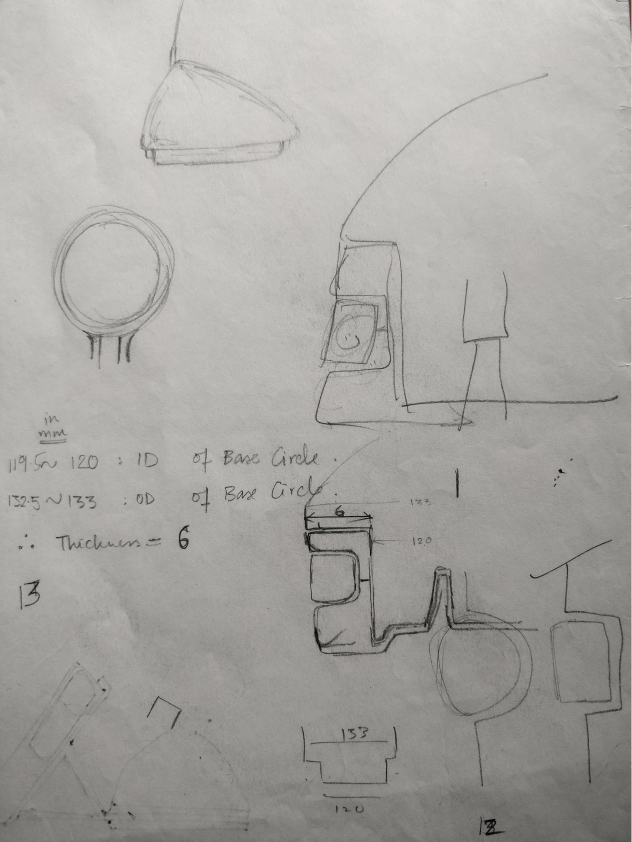 in
mm
119.5 ~ 120 : ID of Base Circle.
132.5 ~ 133 : OD of Base Circle.
∴ Thickness = 6
13
133
6
120
133
120